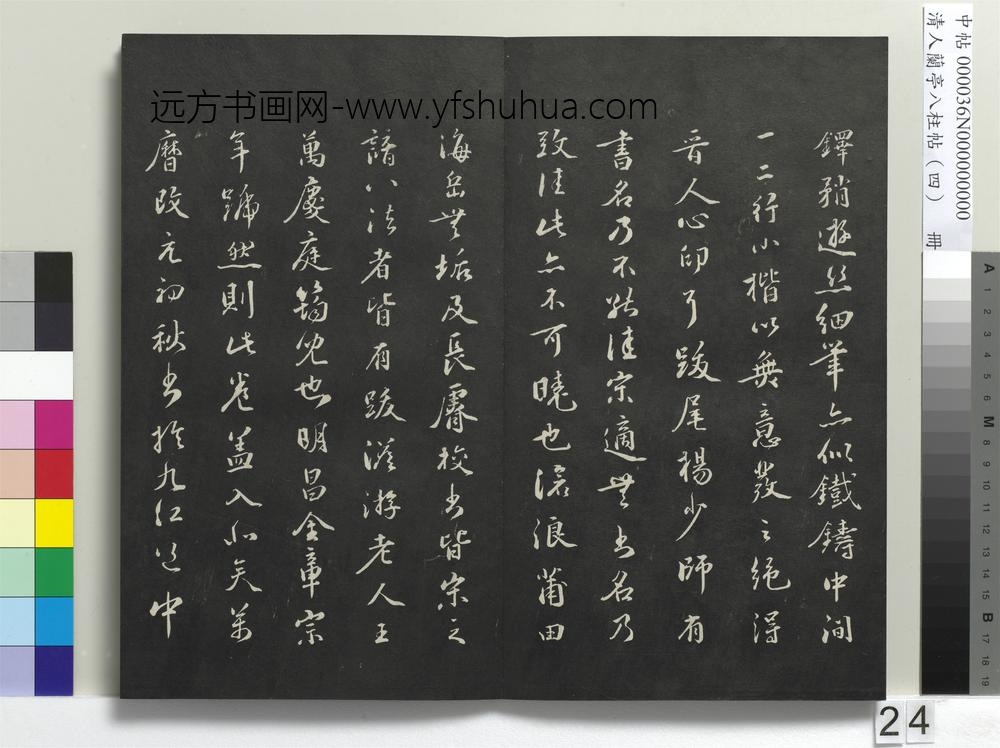 鐸稍遊丝细筆亦似鐵鑄中间
一二行小楷以無意發之絕得
晋人心印了跋尾楊少師有
書名乃不能佳宗適無书名乃
致佳此亦不可曉也滄浪莆田
海岳無垢及長睿校书皆宗之
諳八法者皆有跋漫游老人王
萬慶庭筠兒也明昌金章宗
年號然則此卷盖入北矣萬
曆改元初秋书於九江道中
远方书画网-www.yfshuhua.com
中帖 000036N000000000
清人蘭亭八柱帖（四） 冊
24
A 1 2 3 4 5 6 M 8 9 10 11 12 13 14 15 B 17 18 19